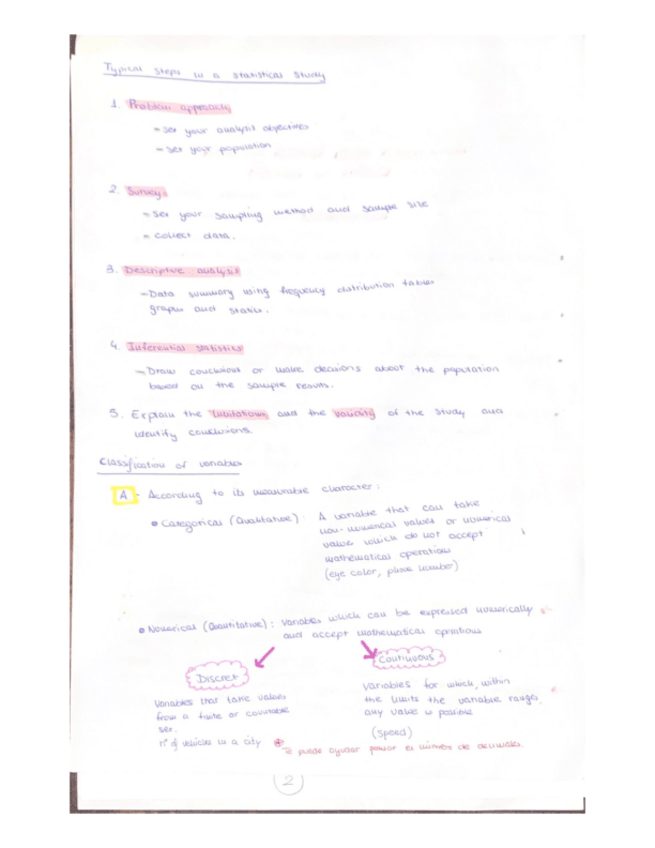 Typical steps in a statistical study
1. Problem approach
- set your analysis objectives
- set your population
2. Survey
- set your sampling method and sample size
- collect data.
3. Descriptive analysis
- Data summary using frequency distribution tables
graphs and
4. Inferential statistics
- Draw conclusions or make decisions about the population
based on the sample results.
5. Explain the limitations and the validity of the study and
identify conclusions.
Classification of variables
A - According to its measurable character:
• Categorical (Qualitative): A variable that can take
non-numerical values or numerical
value which do not accept
mathematical operations
(eye color, phone number)
• Numerical (Quantitative): Variables which can be expressed numerically
and accept mathematical operations
Discret
Continuous
Variables that take values
from a finite or countable
set.
nº of vehicles in a city
variables for which, within
the limits the variable ranges,
any value is possible
(speed)
Te puede ayudar pensar el número de decimales.
2